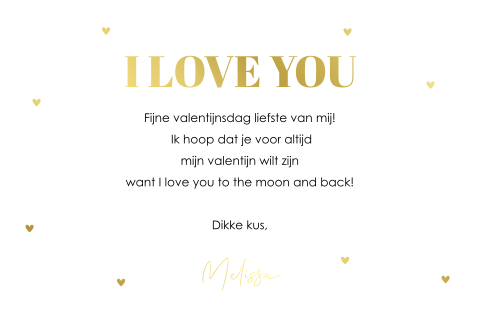 I LOVE YOU
Fijne valentijnsdag liefste van mij!
Ik hoop dat je voor altijd
mijn valentijn wilt zijn
want I love you to the moon and back!
Dikke kus,
Melissa